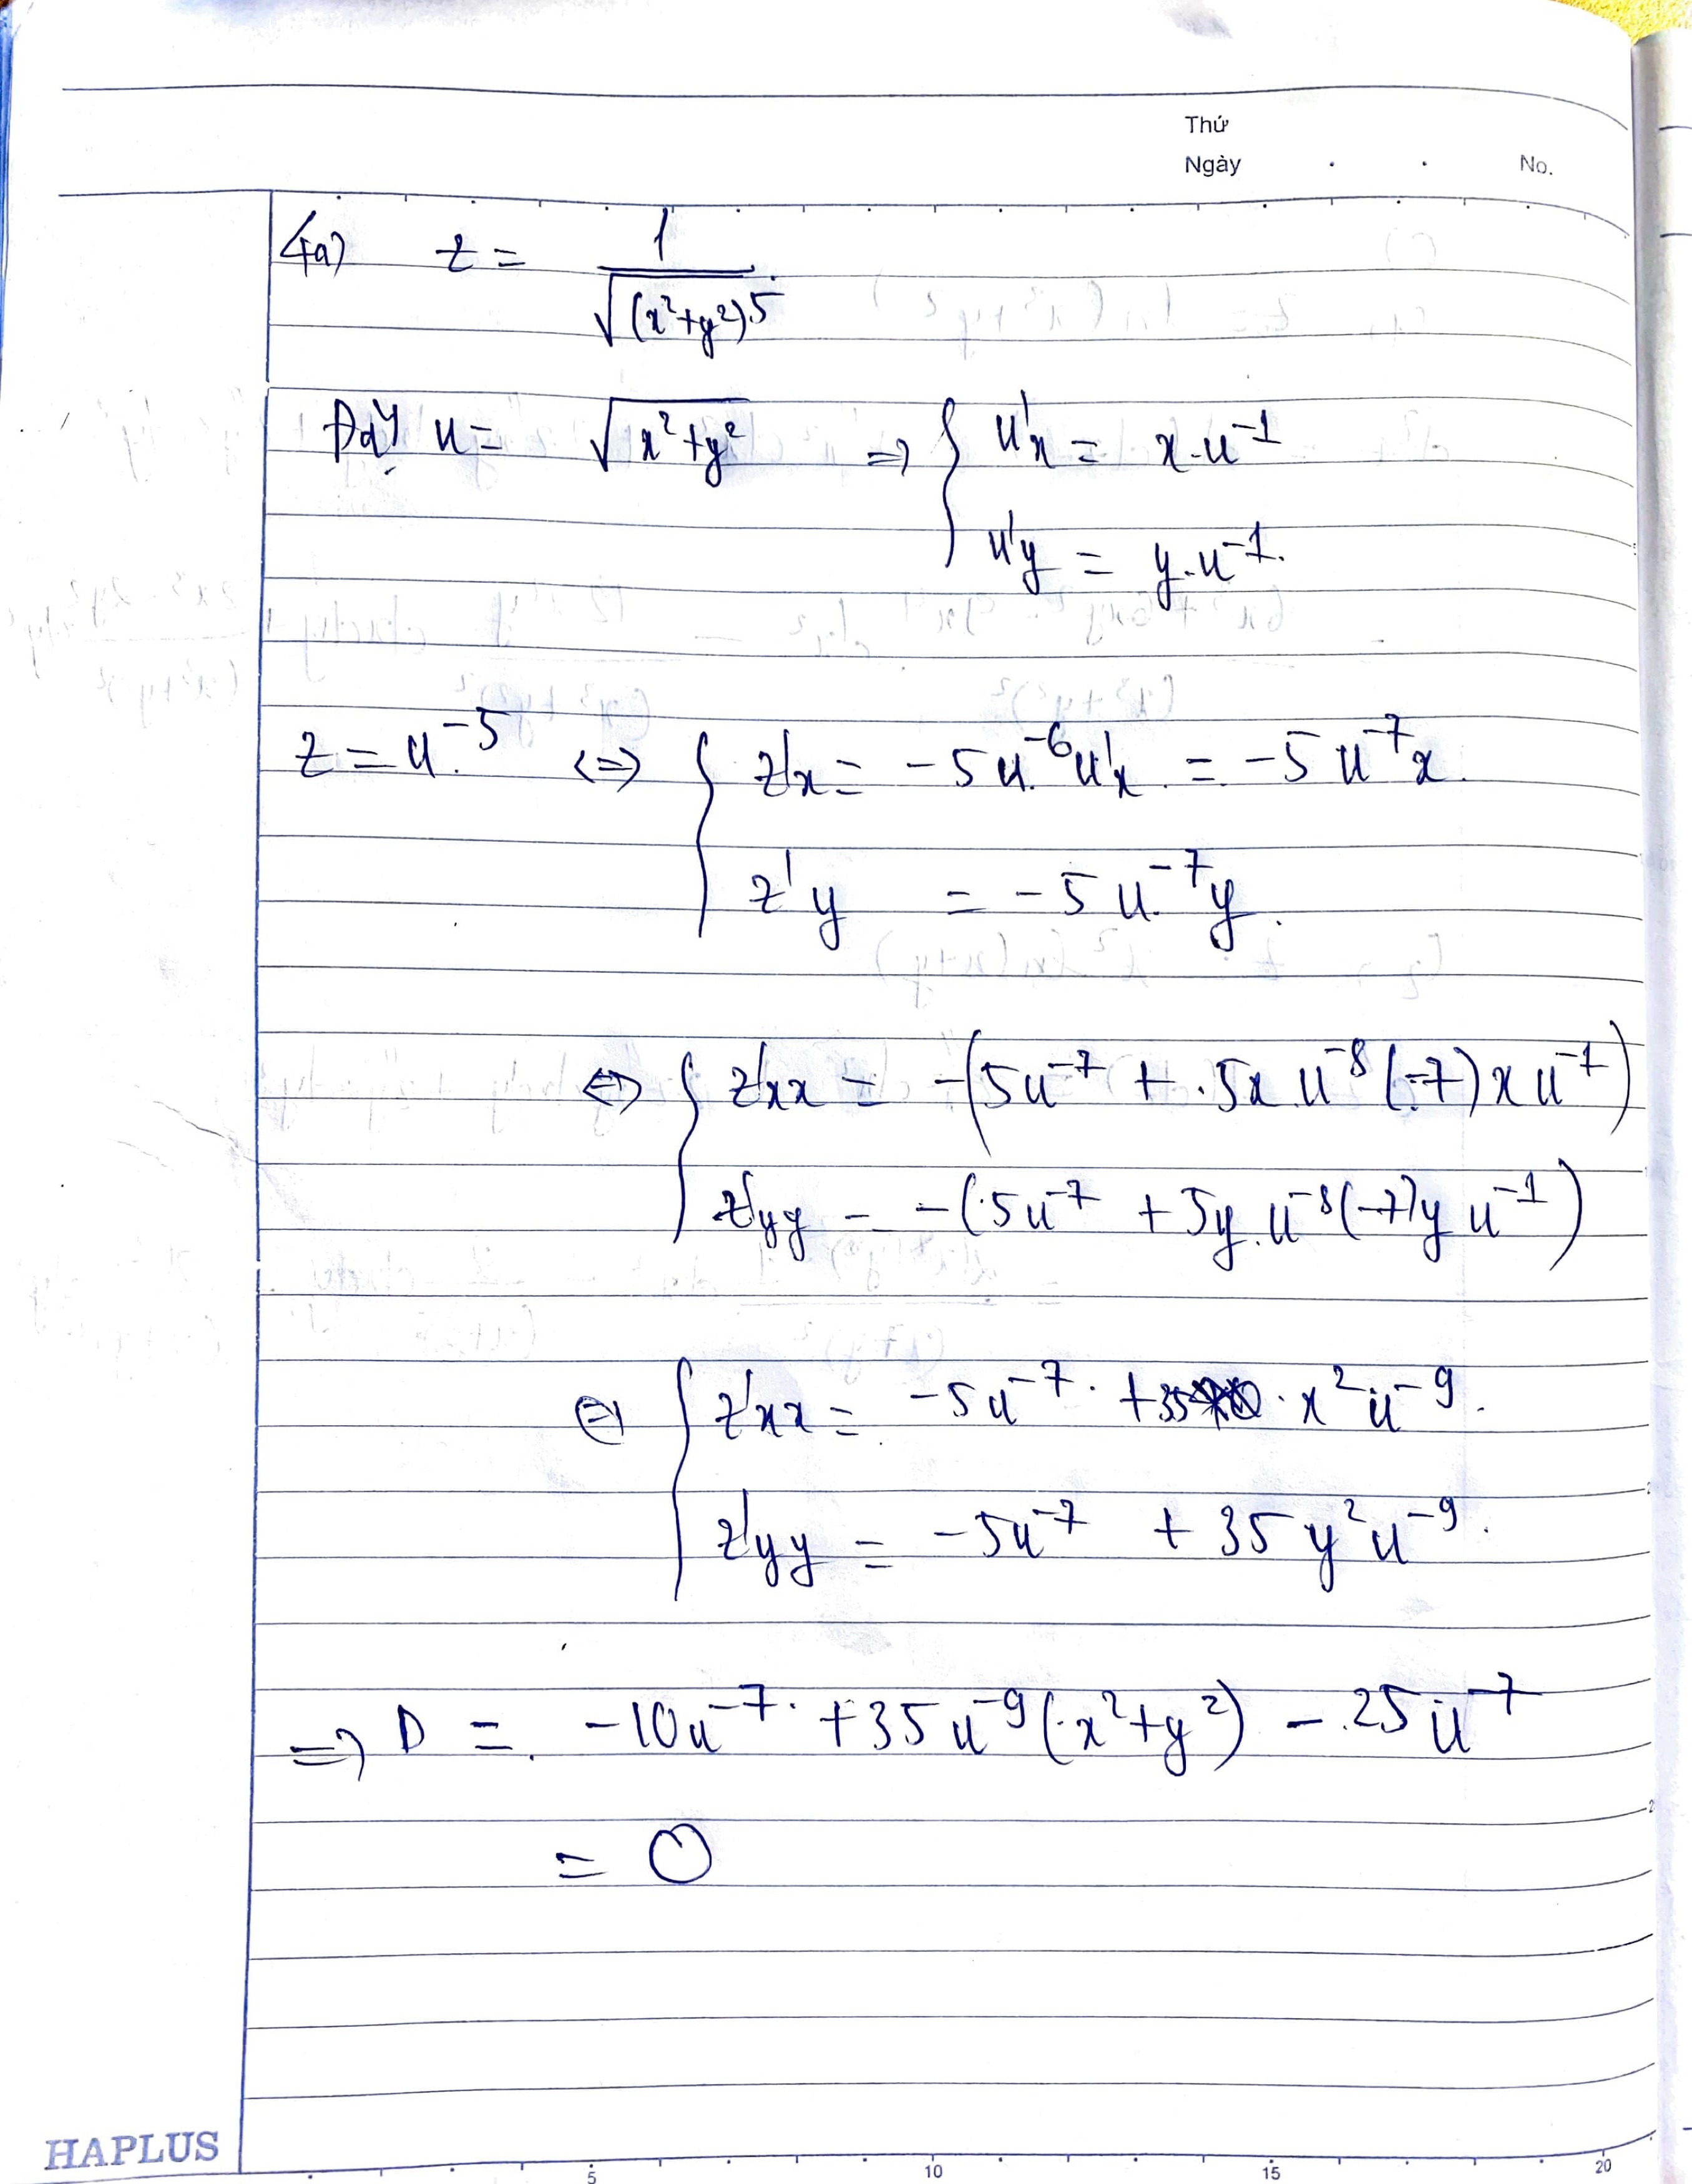 Thứ
Ngày . . No.
4a) z = 1 / √(x²+y²)⁵
Đặt u = √(x²+y²) => { u'x = x.u⁻¹
u'y = y.u⁻¹.
z = u⁻⁵ <=> { z'x = -5u⁻⁶u'x = -5u⁻⁷x.
z'y = -5u⁻⁷y.
<=> { z'xx = -(5u⁻⁷ + 5x u⁻⁸(-7)x u⁻¹)
z'yy = -(5u⁻⁷ + 5y.u⁻⁸(-7)y u⁻¹)
<=> { z'xx = -5u⁻⁷ + 35 . x²u⁻⁹.
z'yy = -5u⁻⁷ + 35y²u⁻⁹.
=> D = -10u⁻⁷ + 35u⁻⁹(x²+y²) - 25u⁻⁷
= 0
HAPLUS
5 10 15 20